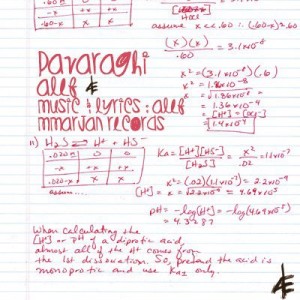 .60
-x +x +x
.60-x x x
[HOCl]
assume x << .60 ∴ (.60-x) ≈ .60
(x)(x) = 3.1×10⁻⁸
.60
x² = (3.1×10⁻⁸)(.6)
x² = 1.8×10⁻⁸
x = √1.8×10⁻⁸
x = 1.36×10⁻⁴
= [H⁺] = [OCl⁻]
= 1.4×10⁻⁴
Davaraghi
Alef
music & lyrics : alef
mmarjan records
11) H₂S ⇌ H⁺ + HS⁻
.020 0 0
-x +x +x
.020-x x x
assume....
Ka₁ = [H⁺][HS⁻] = x² = 1.1×10⁻⁷
[H₂S] .02
x² = (.02)(1.1×10⁻⁷) = 2.2×10⁻⁹
[H⁺] = x = √2.2×10⁻⁹ = 4.69×10⁻⁵
pH = -log[H⁺] = -log(4.69×10⁻⁵)
= 4.3287
When calculating the
[H⁺] or pH of a diprotic acid,
almost all of the H⁺ comes from
the 1st dissociation. So, pretend the acid is
monoprotic and use Ka₁ only.